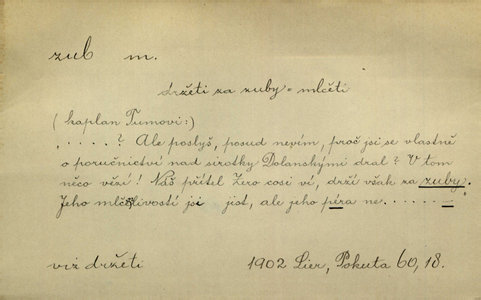 zub m.
držeti za zuby = mlčeti
(kaplan Tumovi:)
„. . . . . ? Ale poslyš, posud nevím, proč jsi se vlastně
o poručnictví nad sirotky Dolanskými dral? V tom
něco vězí! Náš přítel Zero cosi ví, drží však za zuby.
Jeho mlčelivostí jsi jist, ale jeho péra ne. . . . . . —
viz držeti 1902 Lier, Pokuta 60, 18.